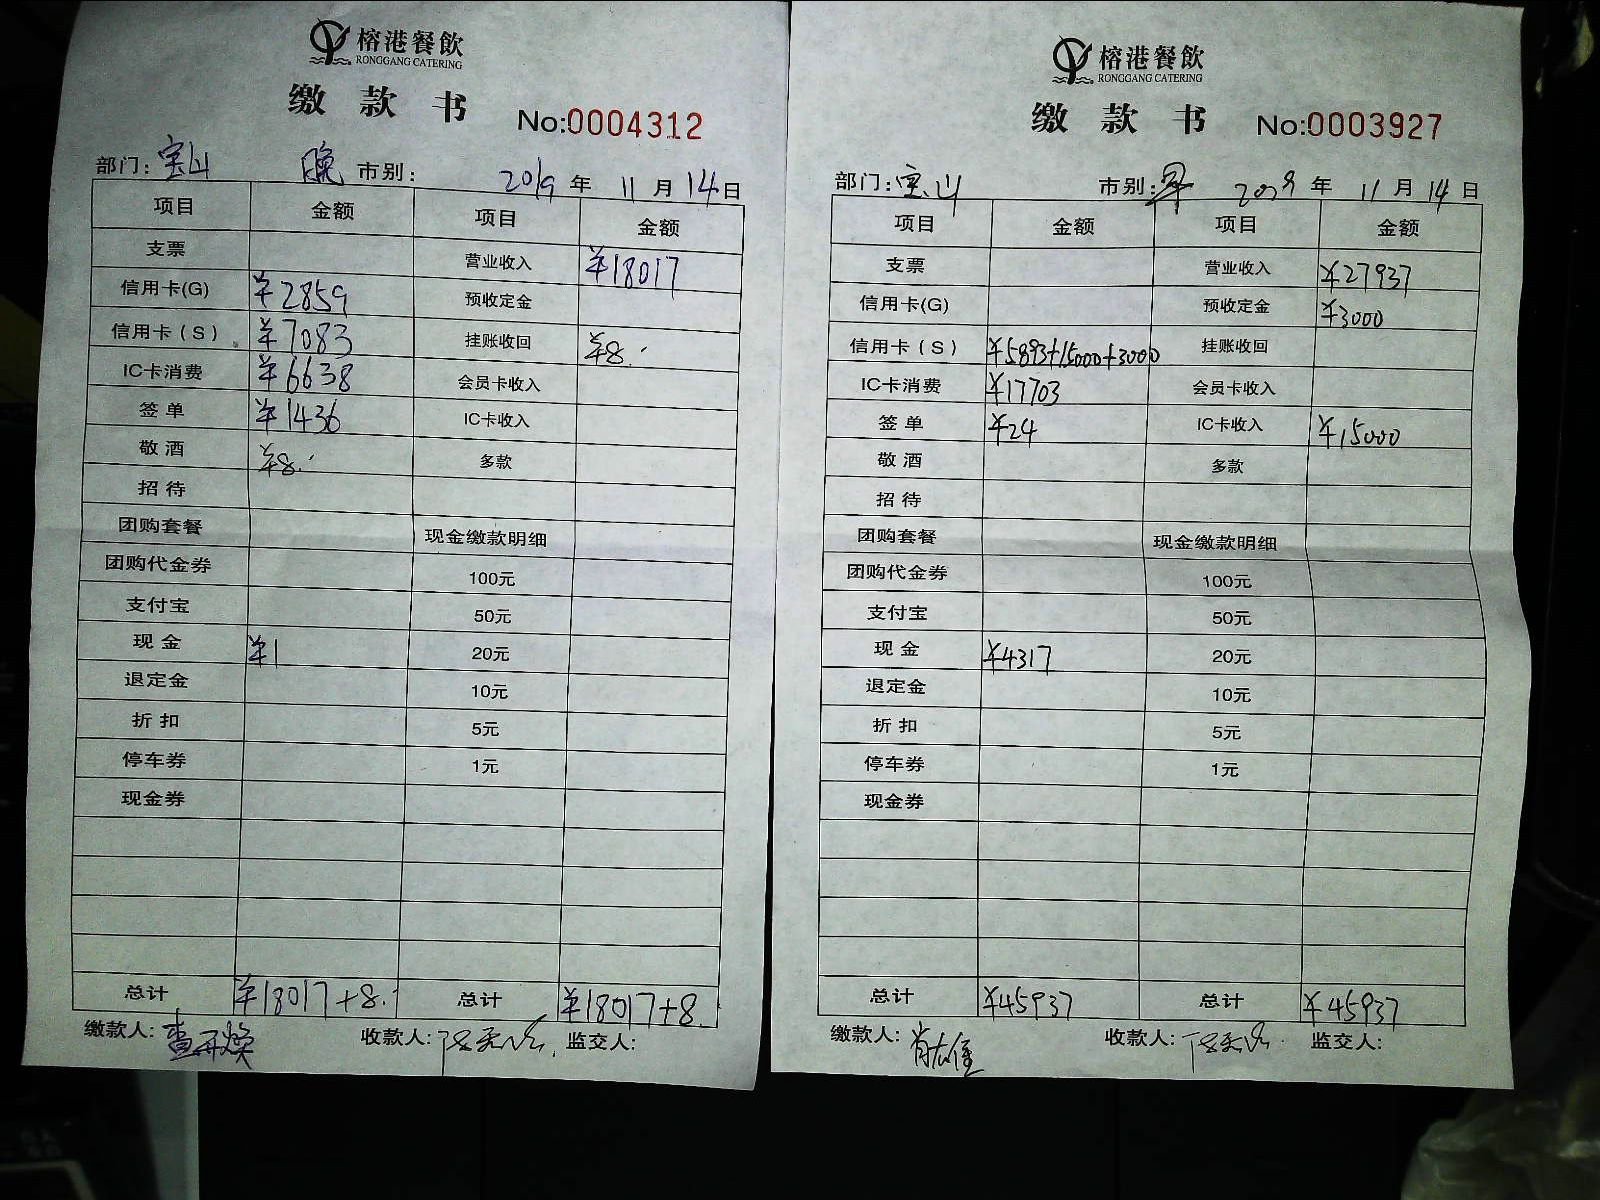 榕港餐飲
RONGGANG CATERING
缴款书 No:0004312
部门:宝山 晚 市别: 2019年 11月 14日
项目 金额 项目 金额
支票 营业收入 ¥18017
信用卡(G) ¥2859 预收定金
信用卡(S) ¥7083 挂账收回 ¥8.
IC卡消费 ¥6638 会员卡收入
签单 ¥1436 IC卡收入
敬酒 ¥8. 多款
招待
团购套餐 现金缴款明细
团购代金券 100元
支付宝 50元
现金 ¥1 20元
退定金 10元
折扣 5元
停车券 1元
现金券
总计 ¥18017+8. 总计 ¥18017+8.
缴款人: 收款人: 监交人:
榕港餐飲
RONGGANG CATERING
缴款书 No:0003927
部门:宝山 市别:早 2019年 11月 14日
项目 金额 项目 金额
支票 营业收入 ¥27937
信用卡(G) 预收定金 ¥3000
信用卡(S) ¥5893+15000+3000 挂账收回
IC卡消费 ¥17703 会员卡收入
签单 ¥24 IC卡收入 ¥15000
敬酒 多款
招待
团购套餐 现金缴款明细
团购代金券 100元
支付宝 50元
现金 ¥4317 20元
退定金 10元
折扣 5元
停车券 1元
现金券
总计 ¥45937 总计 ¥45937
缴款人: 收款人: 监交人: